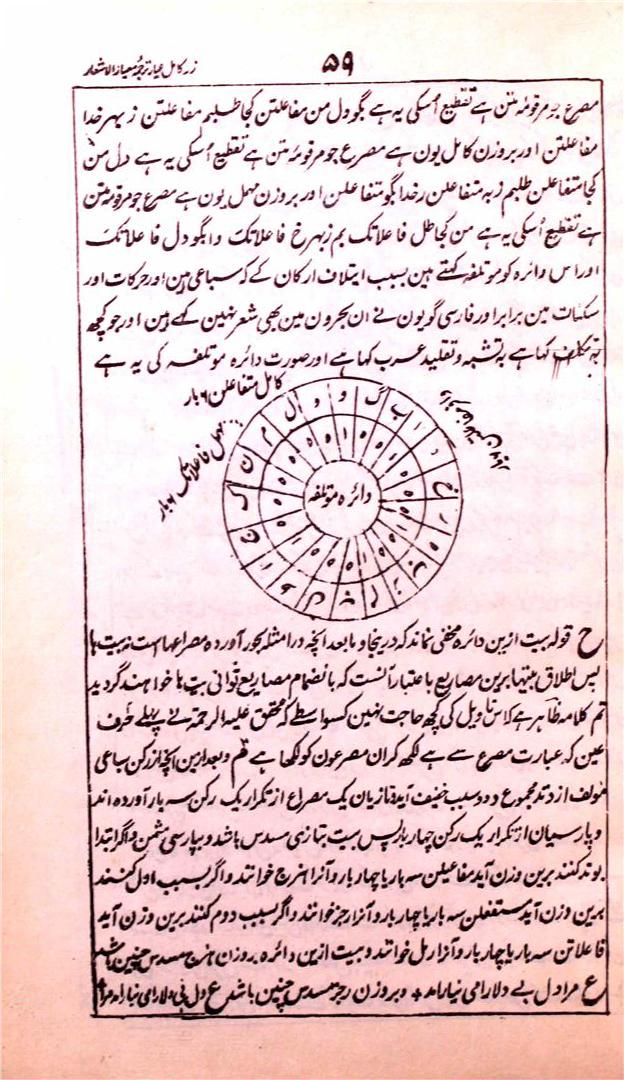 ۵۹
زر کامل عیار ترجمۂ معیار الاشعار
مصرع جو مرقومۂ متن ہے تقطیع اُسکی یہ ہے بگو دل من مفاعلتن کجا طلبم مفاعلتن ز بہر خدا
مفاعلتن اور بروزن کامل یون ہے مصرع جو مرقومۂ متن ہے تقطیع اُسکی یہ ہے دل من
کجا متفاعلن طلبم ز بہ متفاعلن ر خدا بگو متفاعلن اور بروزن مہمل یون ہے مصرع جو مرقومۂ متن
ہے تقطیع اُسکی یہ ہے من کجا طل فاعلاتک بم ز بہر خ فاعلاتک دا بگو دل فاعلاتک
اور اس دائرہ کو موتلفہ کہتے ہین بسبب ایتلاف ارکان کے کہ سباعی ہین اور حرکات اور
سکنات مین برابر اور فارسی گویون نے ان بحرون مین بھی شعر نہین کہے ہین اور جو کچھ
بہ تکلف کہا ہے بہ تشبہ و تقلید عرب کہا ہے اور صورت دائرہ موتلفہ کی یہ ہے
کامل متفاعلن ۶ بار
مہمل فاعلاتک ۶ بار
دائرہ موتلفہ
ح قولہ بیت ازین دائرہ مخفی نماند کہ درینجا و ما بعد انچہ در امثلہ بحور آوردہ مصراعہاست نہ بیت ہا
پس اطلاق بیتہا برین مصاریع باعتبار آنست کہ بانضمام مصاریع ثوانی بیت ہا خواہند گردید
تم کلامہ ظاہر ہے کہ اس تاویل کی کچھ حاجت نہین کسواسطے کہ محقق علیہ الرحمۃ نے پہلے حرف
عین کہ عبارت مصرع سے ہے لکھ کر ان مصرعون کو لکھا ہے قم و بعد ازین انچہ از رکن سباعی
مولف از وتد مجموع و دو سبب خفیف آید و تازیان یک مصراع از تکرار یک رکن سہ بار آوردہ اند
و پارسیان از تکرار یک رکن چہار بار پس بیت بتازی مسدس باشد و بپارسی مثمن و اگر ابتدا
بوتد کنند برین وزن آید مفاعیلن سہ بار یا چہار بار و آنرا ہزج خوانند و اگر بسبب اول کنند
برین وزن آید مستفعلن سہ بار یا چہار بار و آنرا رجز خوانند و اگر بسبب دوم کنند برین وزن آید
فاعلاتن سہ بار یا چہار بار و آنرا رمل خوانند و بیت ازین دائرہ بروزن ہزج مسدس چنین باشد
ع مرا دل بے دلارامی نیارامد و بروزن رجز مسدس چنین باشد ع دل بی دلارامی نیارامد مرا